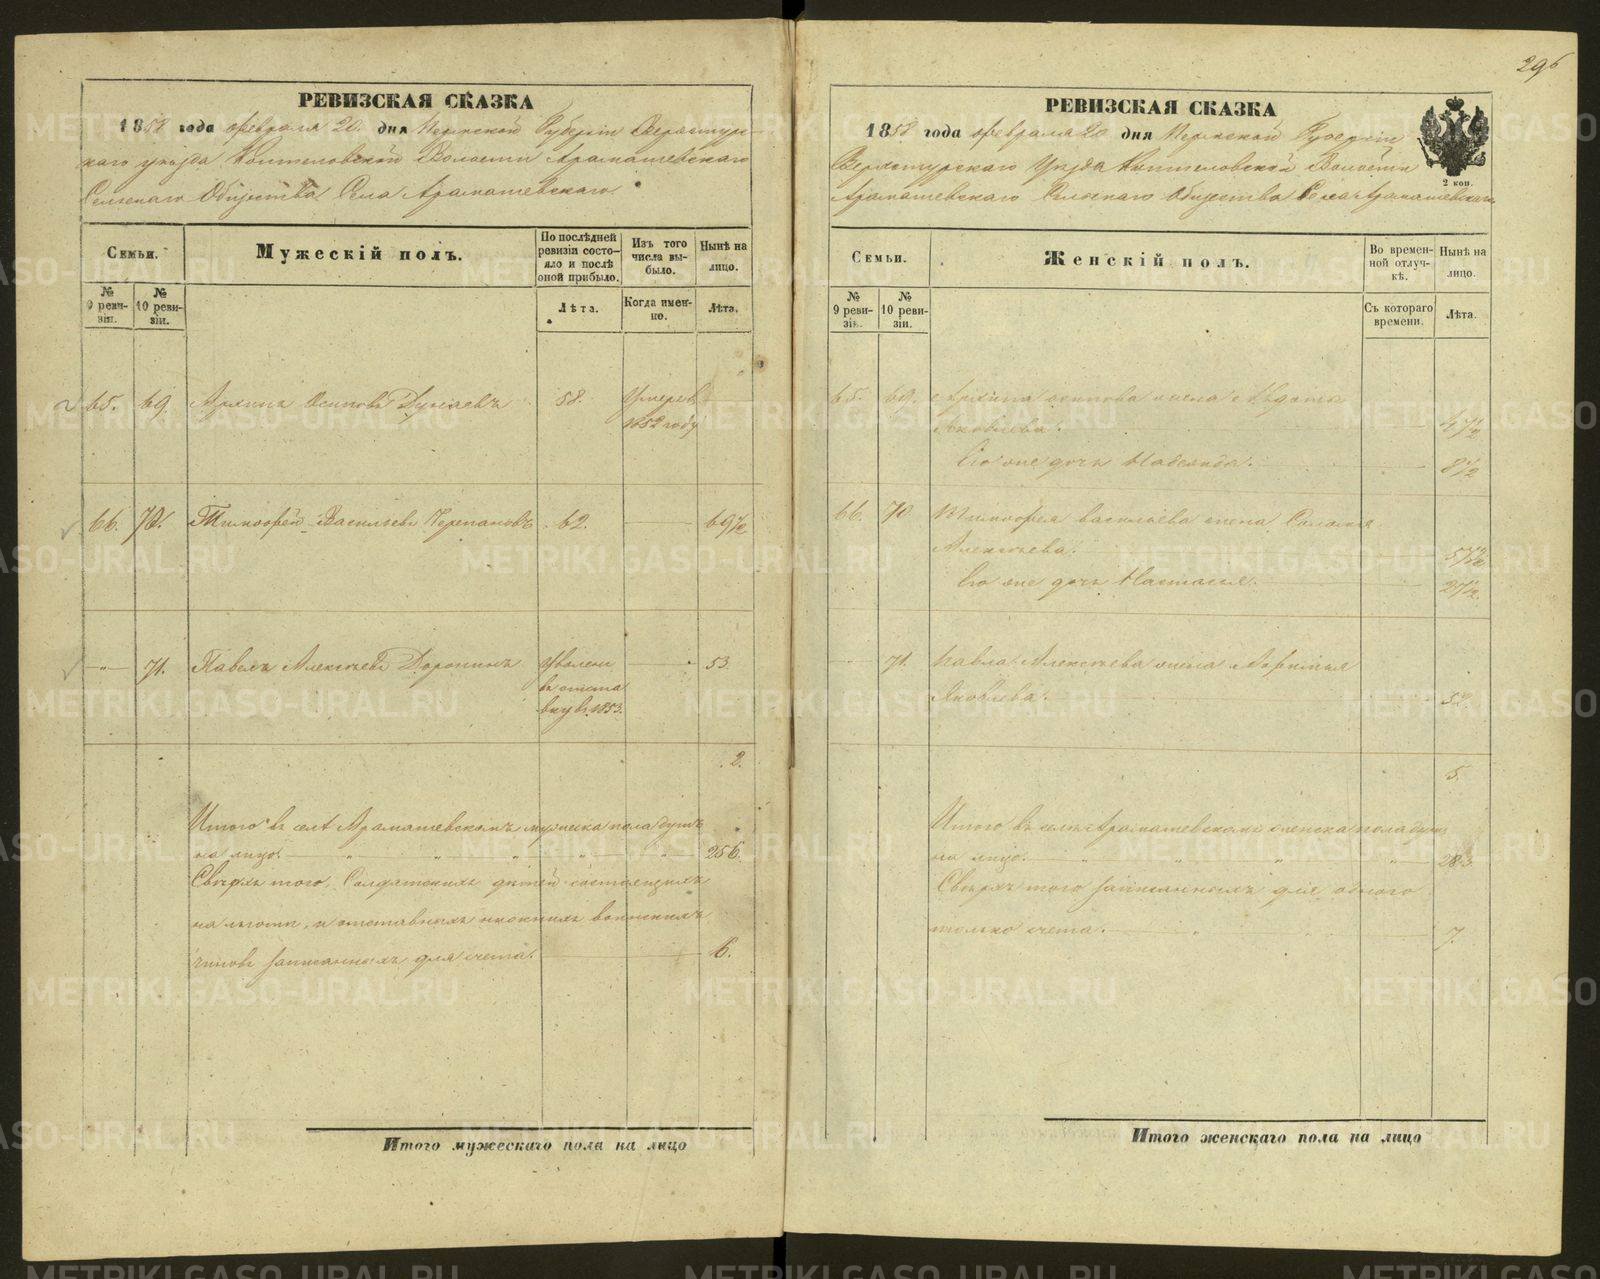 296
РЕВИЗСКАЯ СКАЗКА
1858 года февраля 20 дня Пермской Губернiи Верхотур-
скаго уѣзда Коптеловской Волости Арамашевскаго
Сельскаго Общества Села Арамашевскаго
Семьи.
Мужескiй полъ.
По послѣдней ревизiи состо-
яло и послѣ оной прибыло.
Изъ того числа вы-
было.
Нынѣ на лицо.
№ 9 реви-
зiи.
№ 10 реви-
зiи.
Лѣта.
Когда имен-
но.
Лѣта.
65. 69. Архипъ Осиповъ Дунаевъ 58. Умеръ в
1852 году
66. 70. Тимофей Васильевъ Черепановъ 62. — 69½
— 71. Павелъ Алексѣевъ Доронинъ Уволенъ — 53
въ отста
вку въ 1853.
2.
Итого въ селѣ Арамашевскомъ мужеска пола душъ
на лицо. 256.
Сверхъ того, Солдатскихъ дѣтей состоящихъ
на льготѣ, и отставныхъ нижнихъ воинскихъ
чиновъ записанныхъ для счета. 6.
Итого мужескаго пола на лицо
РЕВИЗСКАЯ СКАЗКА
1858 года февраля 20 дня Пермской Губернiи
Верхотурскаго Уѣзда Коптеловской Волости
Арамашевскаго Сельскаго Общества Села Арамашевскаго
2 коп.
Семьи.
Женскiй полъ.
Во времен-
ной отлуч-
кѣ.
Нынѣ на лицо.
№ 9 реви-
зiи.
№ 10 реви-
зiи.
Съ котораго времени.
Лѣта.
65. 69. Архипа Осипова жена
Яковлева. 47½
Его же дочь Надежда. 8½
66. 70 Тимофея Васильева жена
Алексѣева. 57½
Его же дочь Настасья. 21½.
— 71. Павла Алексѣева жена
Яковлева. 52.
5.
Итого въ селѣ Арамашевскомъ женска пола душъ
на лицо. 283
Сверхъ того записанныхъ для одного
только счета. 7.
Итого женскаго пола на лицо
METRIKI.GASO-URAL.RU